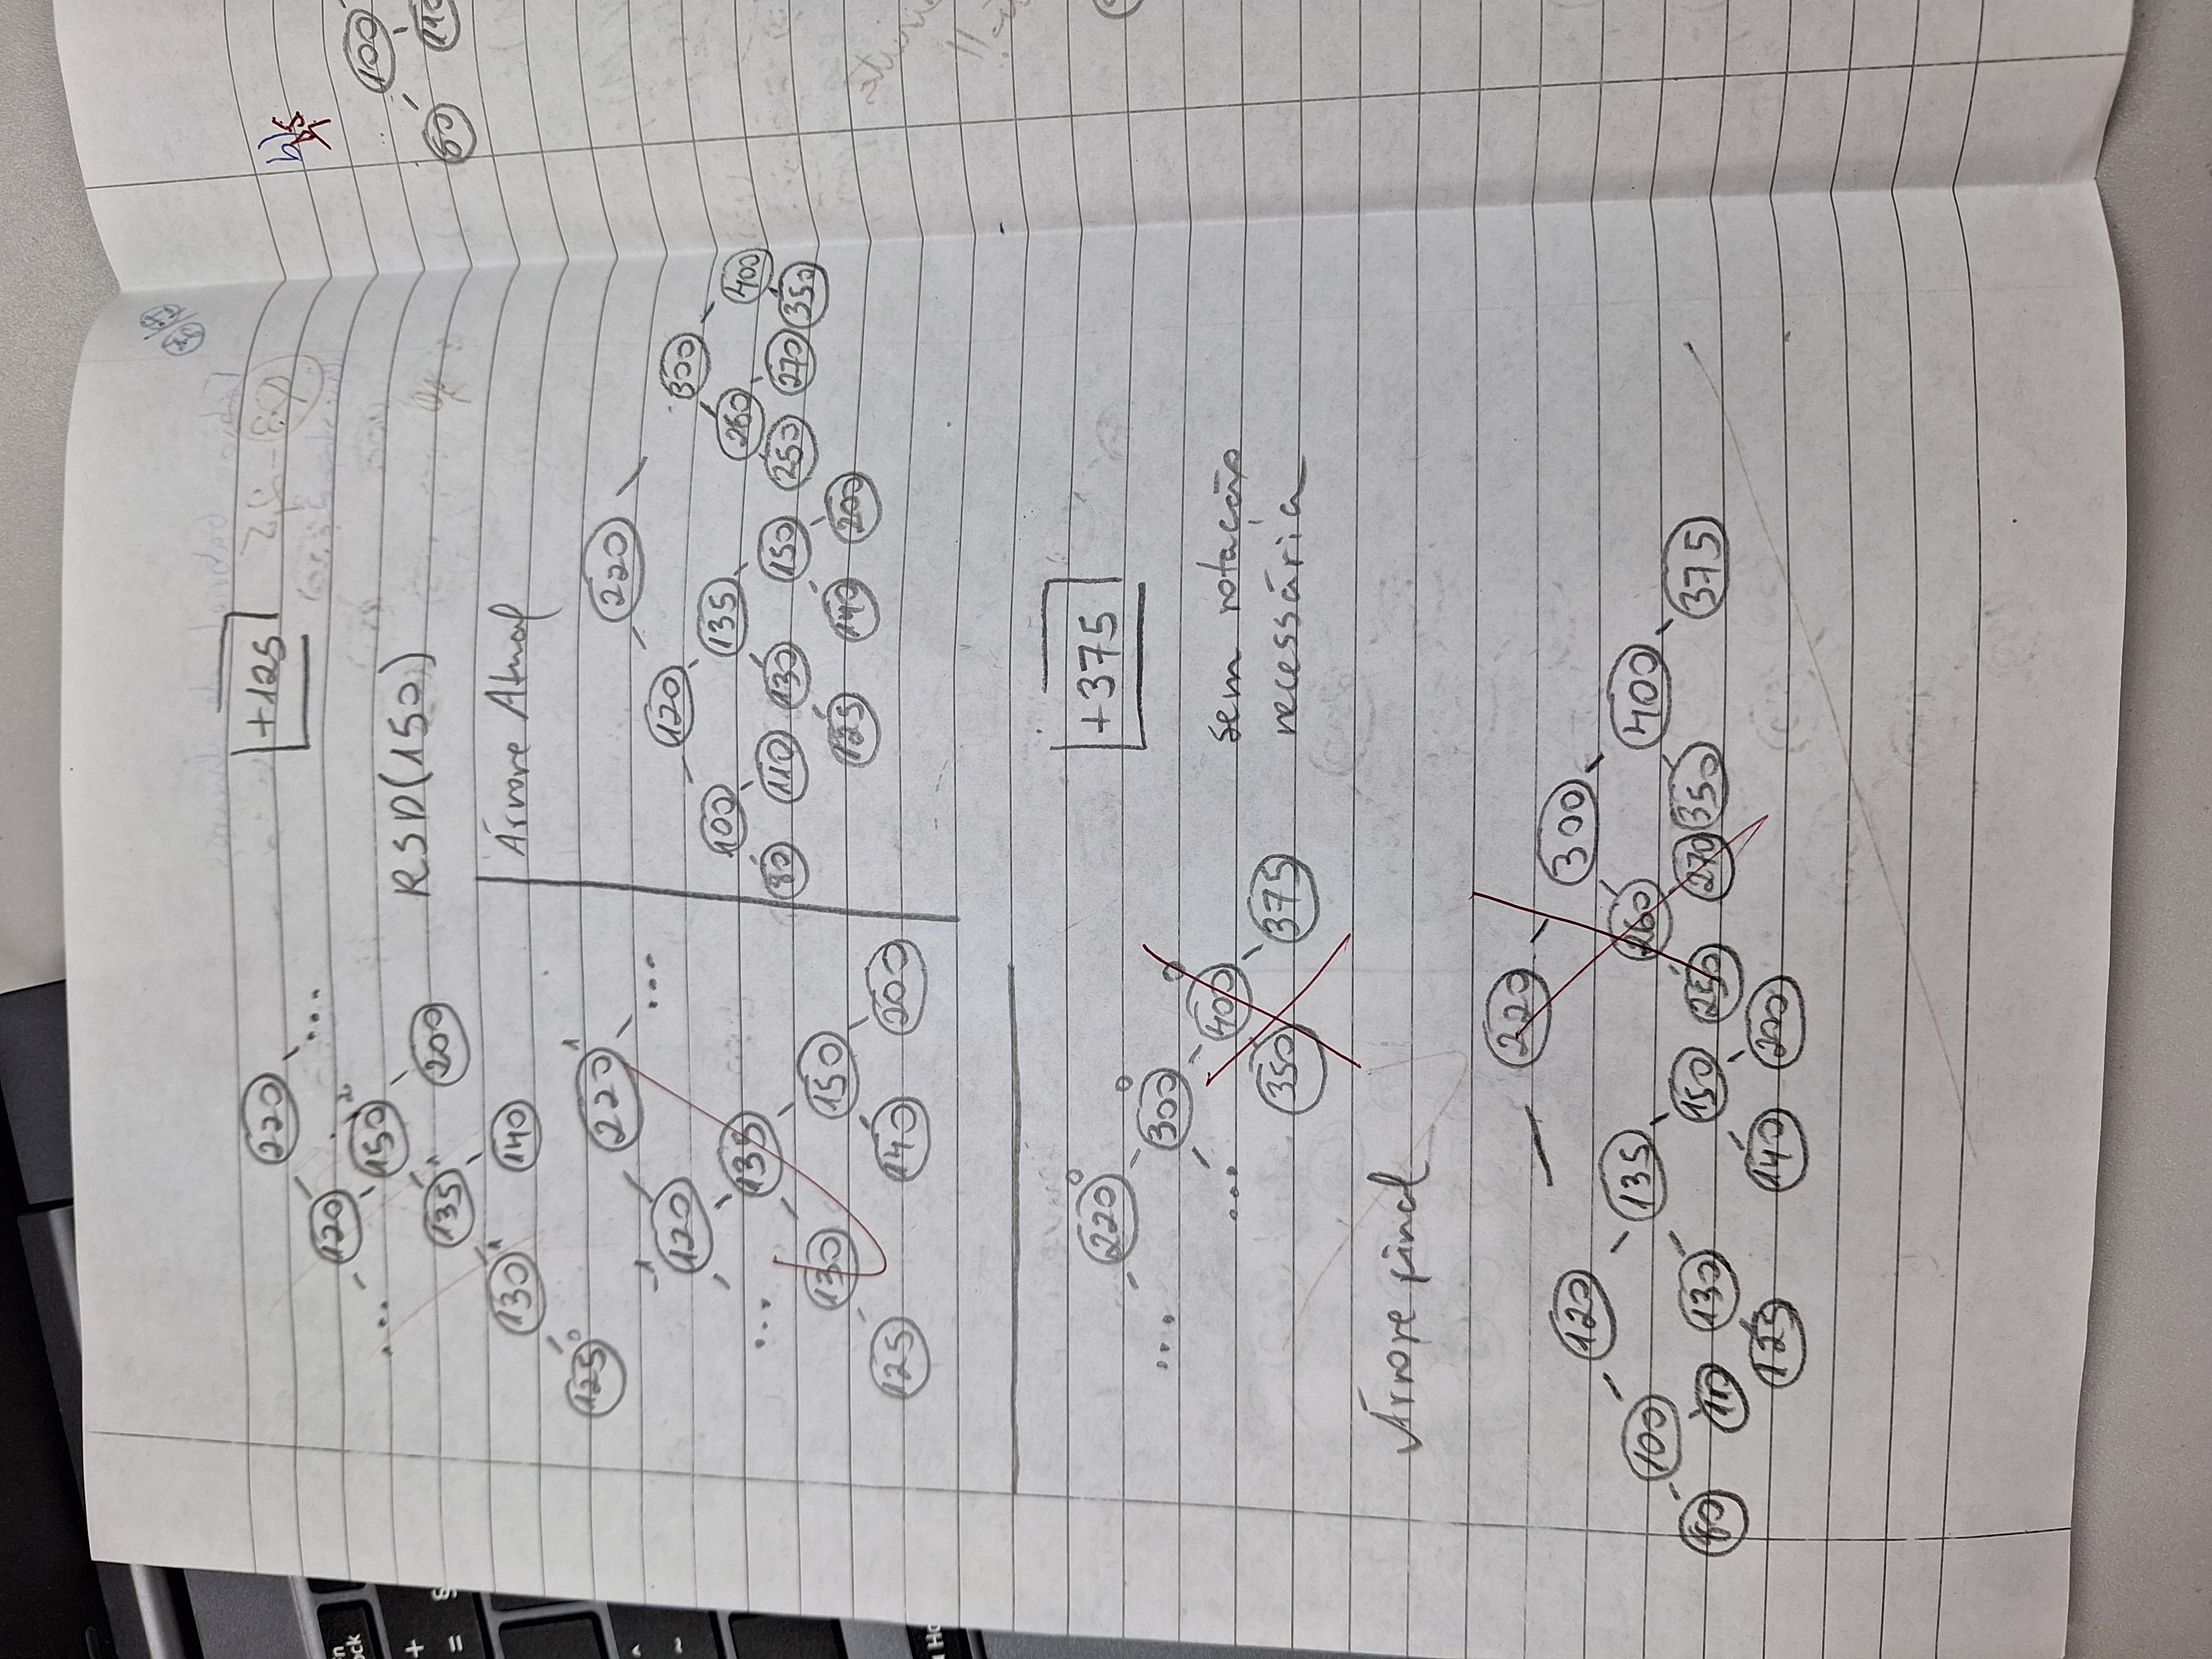 220
+125
120
...
150 2
...
135 1
200
RSD(150)
130 1
140
125 0
Árvore Atual
220 1
-1
120
...
...
135
130
150
125
140
200
220
120
300
100
135
260
400
80
110
130
150
250
270
350
125
140
200
+375
220 0
300 0
...
400 0
...
350
375
sem rotação
necessária
Árvore final
220
120
300
100
135
260
400
80
110
130
150
250
270
350
375
125
140
200
b)
100